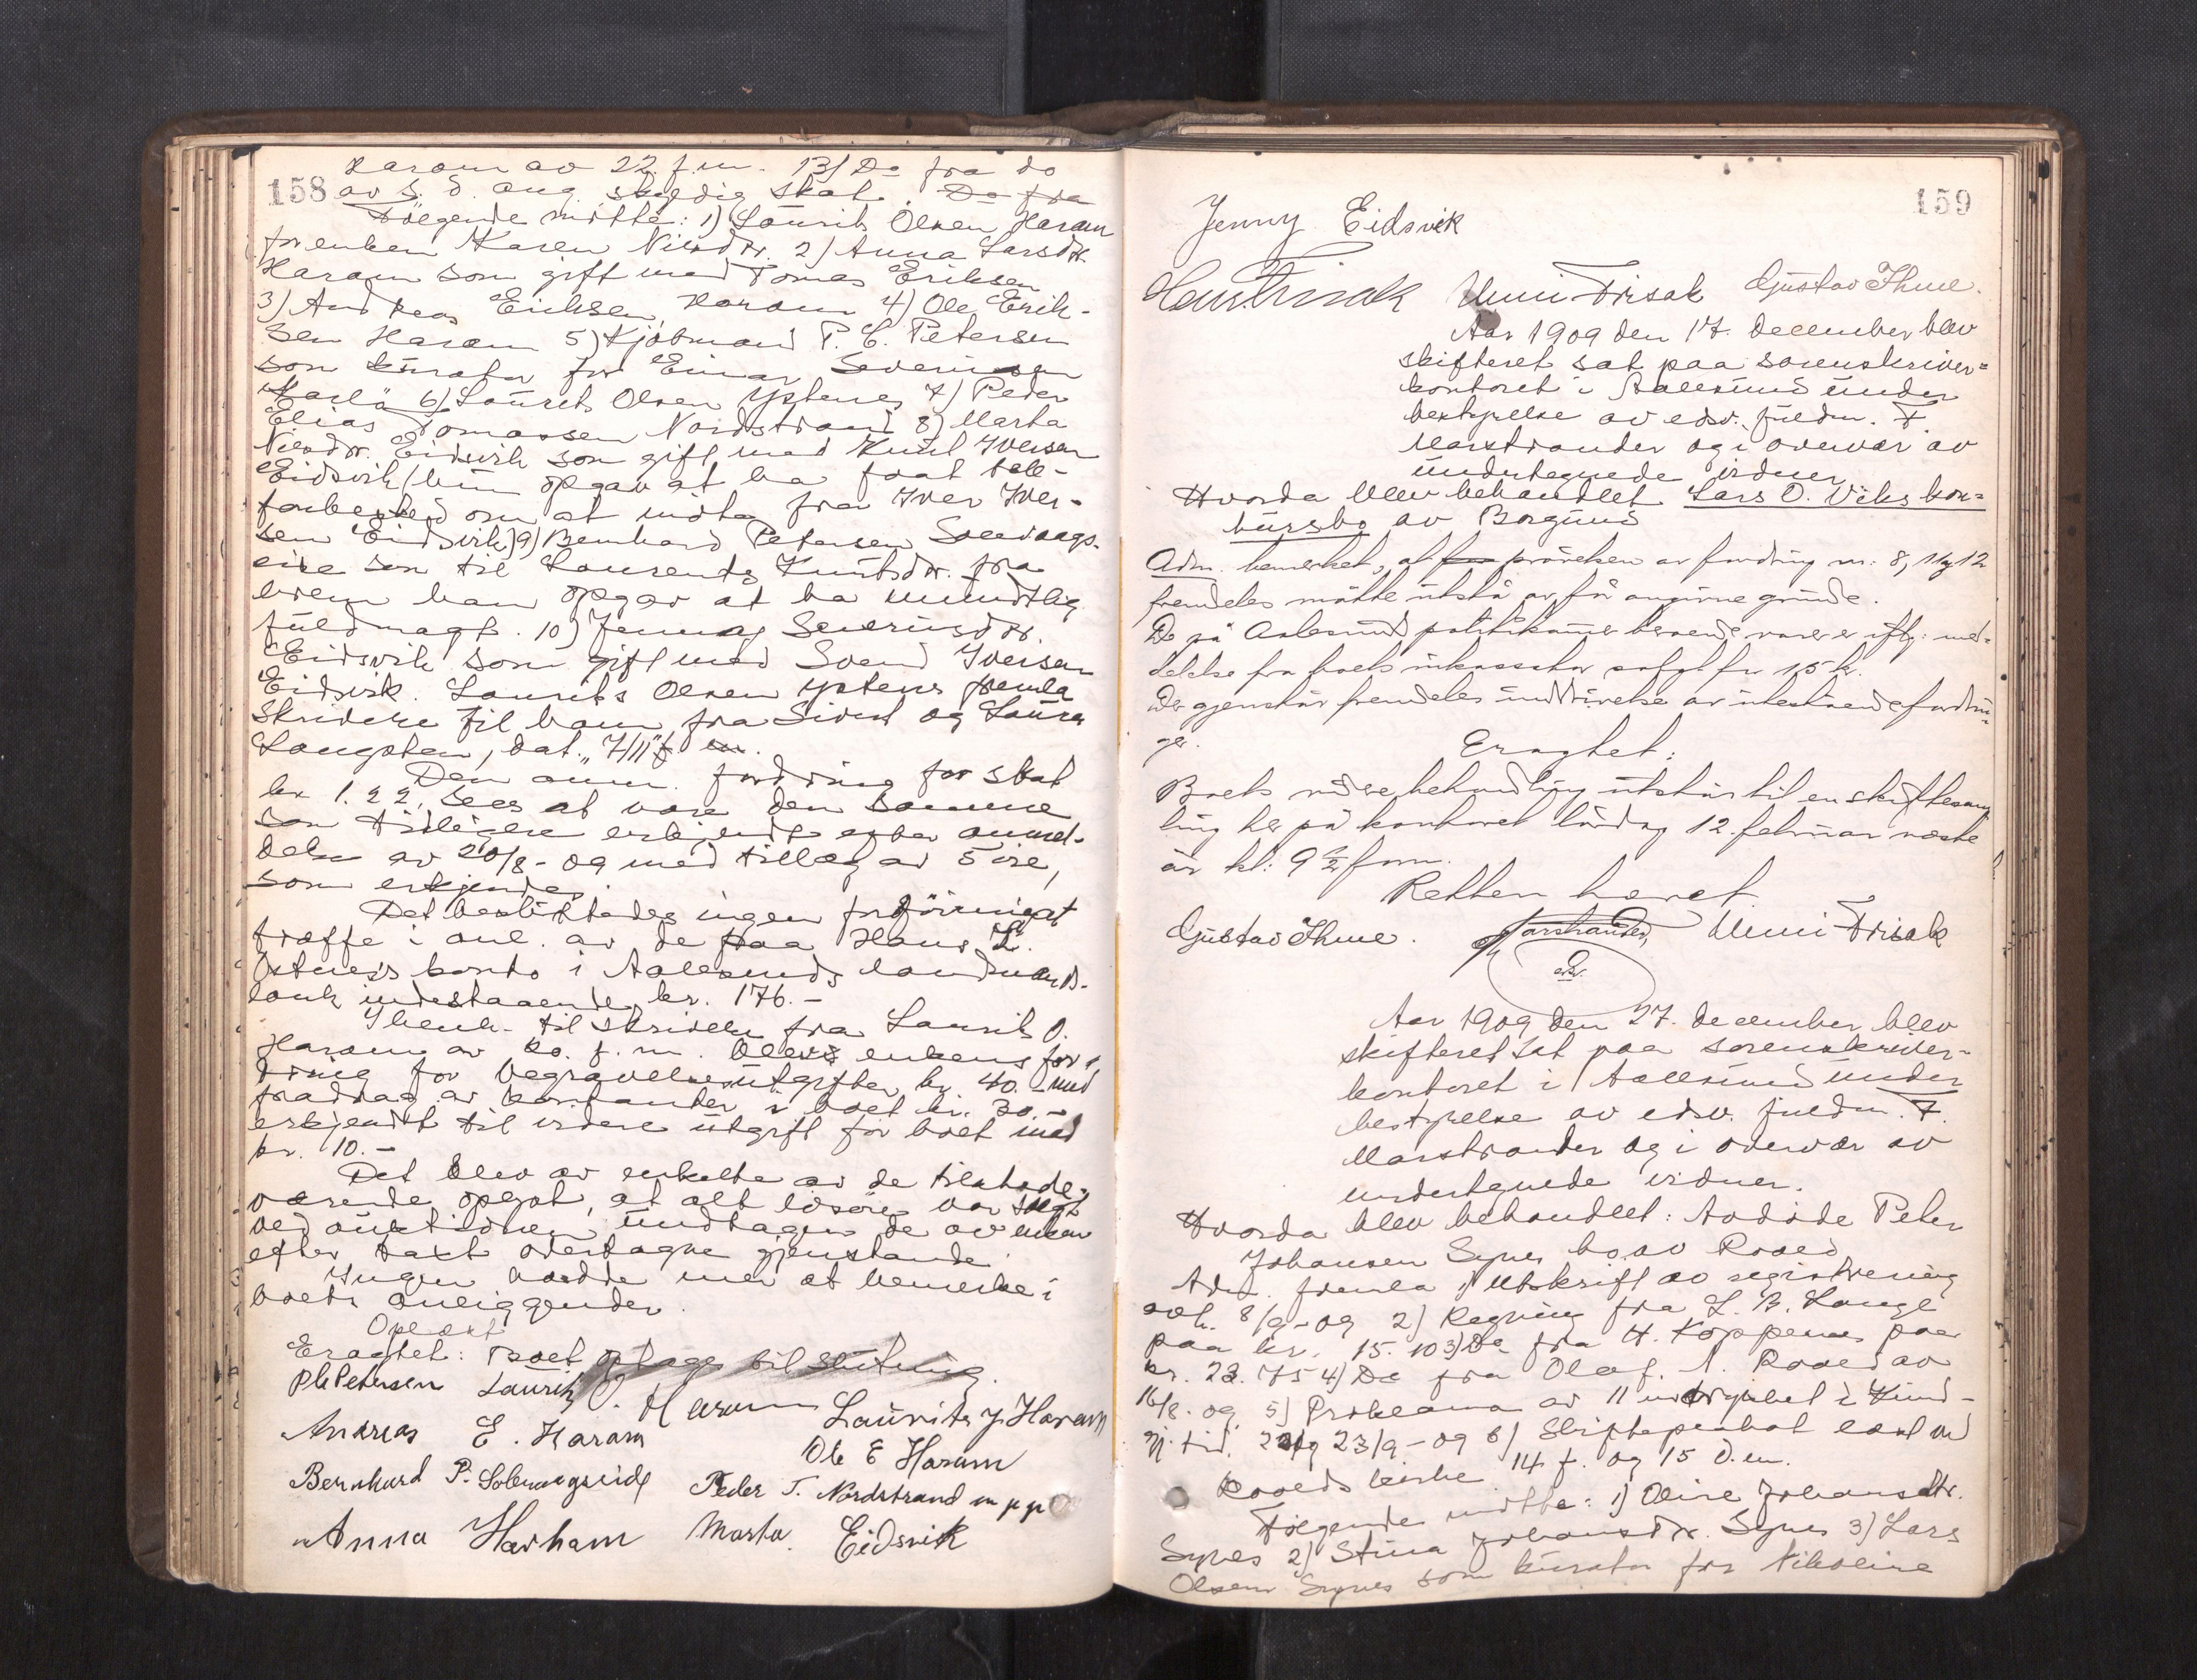 158
Haram av 22. f.m. 13) Do fra do
av s. d. ang. skyldig skat. Do fra
Følgende mötte: 1) Laurits Olsen Haram
for enken Karen Nilsdtr. 2) Anna Larsdtr.
Haram som gift med Tomas Eriksen
3) Andreas Eriksen Haram 4) Ole Erik-
sen Haram 5) Kjöbmand P. C. Petersen
som kurator for Einar Severinsen
6) Laurits Olsen Ystenes 7) Peder
Elias Tomassen Nordstrand 8) Marta
Nilsdtr. Eidsvik som gift med Knut Iversen
Eidsvik (hun opgav at ha faat tele-
fonbesked om at möta fra Iver Iver-
sen Eidsvik) 9) Bernhard Petersen Solevaags-
eide son til Laurentse Knutsdtr. fra
hvem han opgav at ha mundtlig
fuldmagt. 10) Jenny Severinsdtr.
Eidsvik som gift med Svend Iversen
Eidsvik. Laurits Olsen Ystenes fremla
skrivelse til ham fra Sivert og Laura
Longsten, dat. "7/11"
Den anm. fordring for skat
kr 1.22. sees at være den samme
som tidligere erkjendt efter anmel-
delse av 20/8-09 med tillæg av 5 öre,
som erkjendes.
Det besluttedes ingen forföininger at
træffe i anl. av de paa Hans L.
Östnes's konto i Aalesunds landmands-
bank indestaaende kr. 176.-
I henh. til skrivelse fra Laurits O.
Haram av 20. f. m. blev enkens for-
dring for begravelsesutgifter kr. 40.- med
fradrag av kontanter i boet kr. 30.-
erkjendt til videre utgift for boet med
kr. 10.-
Det blev av enkelte av de tilstede-
værende oplyst, at alt lösöre var solgt
ved auktionen undtagen de av enken
efter takst overtagne gjenstande.
Ingen hadde mer at bemerke i
boets anliggender.
Oplæst
Eragtet: Boet optages til slutning.
P C Petersen Laurits O. Haram Laurits J. Haram
Andreas E. Haram Ole E Haram
Bernhard P. Solevaagseide Peder T. Nordstrand m p p
Anna Harham Marta Eidsvik
159
Jenny Eidsvik
Unni Frisak Gustav Thue.
Aar 1909 den 17. december blev
skifteret sat paa sorenskriver-
kontoret i Aalesund under
bestyrelse av edsv. fuldm. F.
Marstrander og i overvær av
undertegnede vidner
Hvorda blev behandlet Lars O. Viks kon-
kursbo av Borgund
Adm. bemerket, at prövelsen av fordring nr. 8, 11 og 12
fremdeles måtte utstå av för angivne grunde.
De på Aalesund politikammer beroende varer er iflg. med-
delelse fra boets inkassator solgt for 15 kr.
Der gjenstår fremdeles inddrivelse av utestående fordrin-
ger.
Eragtet:
Boets videre behandling utstår til en skiftesam-
ling her på kontoret lördag 12. februar næste
år kl: 9 1/2 form.
Retten hævet.
Gustav Thue. F Marstrander, Unni Frisak
edsv.
Aar 1909 den 27. december blev
skifteret sat paa sorenskriver-
kontoret i Aalesund under
bestyrelse av edsv. fuldm. F.
Marstrander og i overvær av
undertegnede vidner.
Hvorda blev behandlet: Avdöde Peter
Johansen Synes bo av Roald
Adm. fremla 1) Utskrift av registrering
avh. 8/9-09 2) Regning fra L. B. Lange
paa kr. 15.10 3) Do fra H. Koppernæs paa
kr. 23.75 4) Do fra Olaf A. Roald av
16/8-09 5) Proklama av 11 indrykket i Kund-
gj. tid. 22 og 23/9-09 6) Skifteplakat læst ved
Roalds kirke 14 f. og 15 d.m.
Følgende mötte: 1) Oline Johansdtr.
Synes 2) Stina Johansdtr. Synes 3) Lars
Olsen Synes som kurator for Nikoline